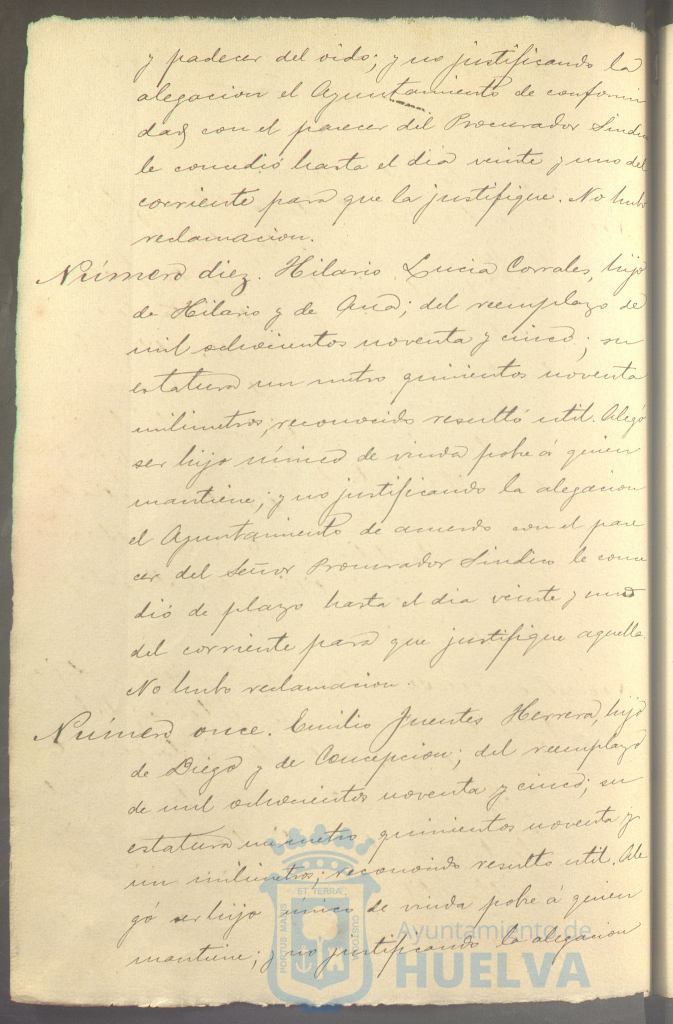 y padecer del oido; y no justificando la
alegacion el Ayuntamiento de conformi
dad con el parecer del Procurador Sindico
le concedió hasta el dia veinte y uno del
corriente para que la justifique. No hubo
reclamacion.
Número diez. Hilario Lucia Corrales, hijo
de Hilario y de Ana; del reemplazo de
mil ochocientos noventa y cinco; su
estatura un metro quinientos noventa
milimetros; reconocido resultó util. Alegó
ser hijo único de viuda pobre á quien
mantiene; y no justificando la alegacion
el Ayuntamiento de acuerdo con el pare
cer del Señor Procurador Sindico le conce
dió de plazo hasta el dia veinte y uno
del corriente para que justifique aquella.
No hubo reclamacion.
Número once. Emilio Fuentes Herrera, hijo
de Diego y de Concepcion; del reemplazo
de mil ochocientos noventa y cinco; su
estatura un metro quinientos noventa y
un milimetros; reconocido resultó util. Ale
gó ser hijo único de viuda pobre á quien
mantiene; y no justificando la alegacion
PORTUS MARIS ET TERRAE CUSTODIA
Ayuntamiento de
HUELVA